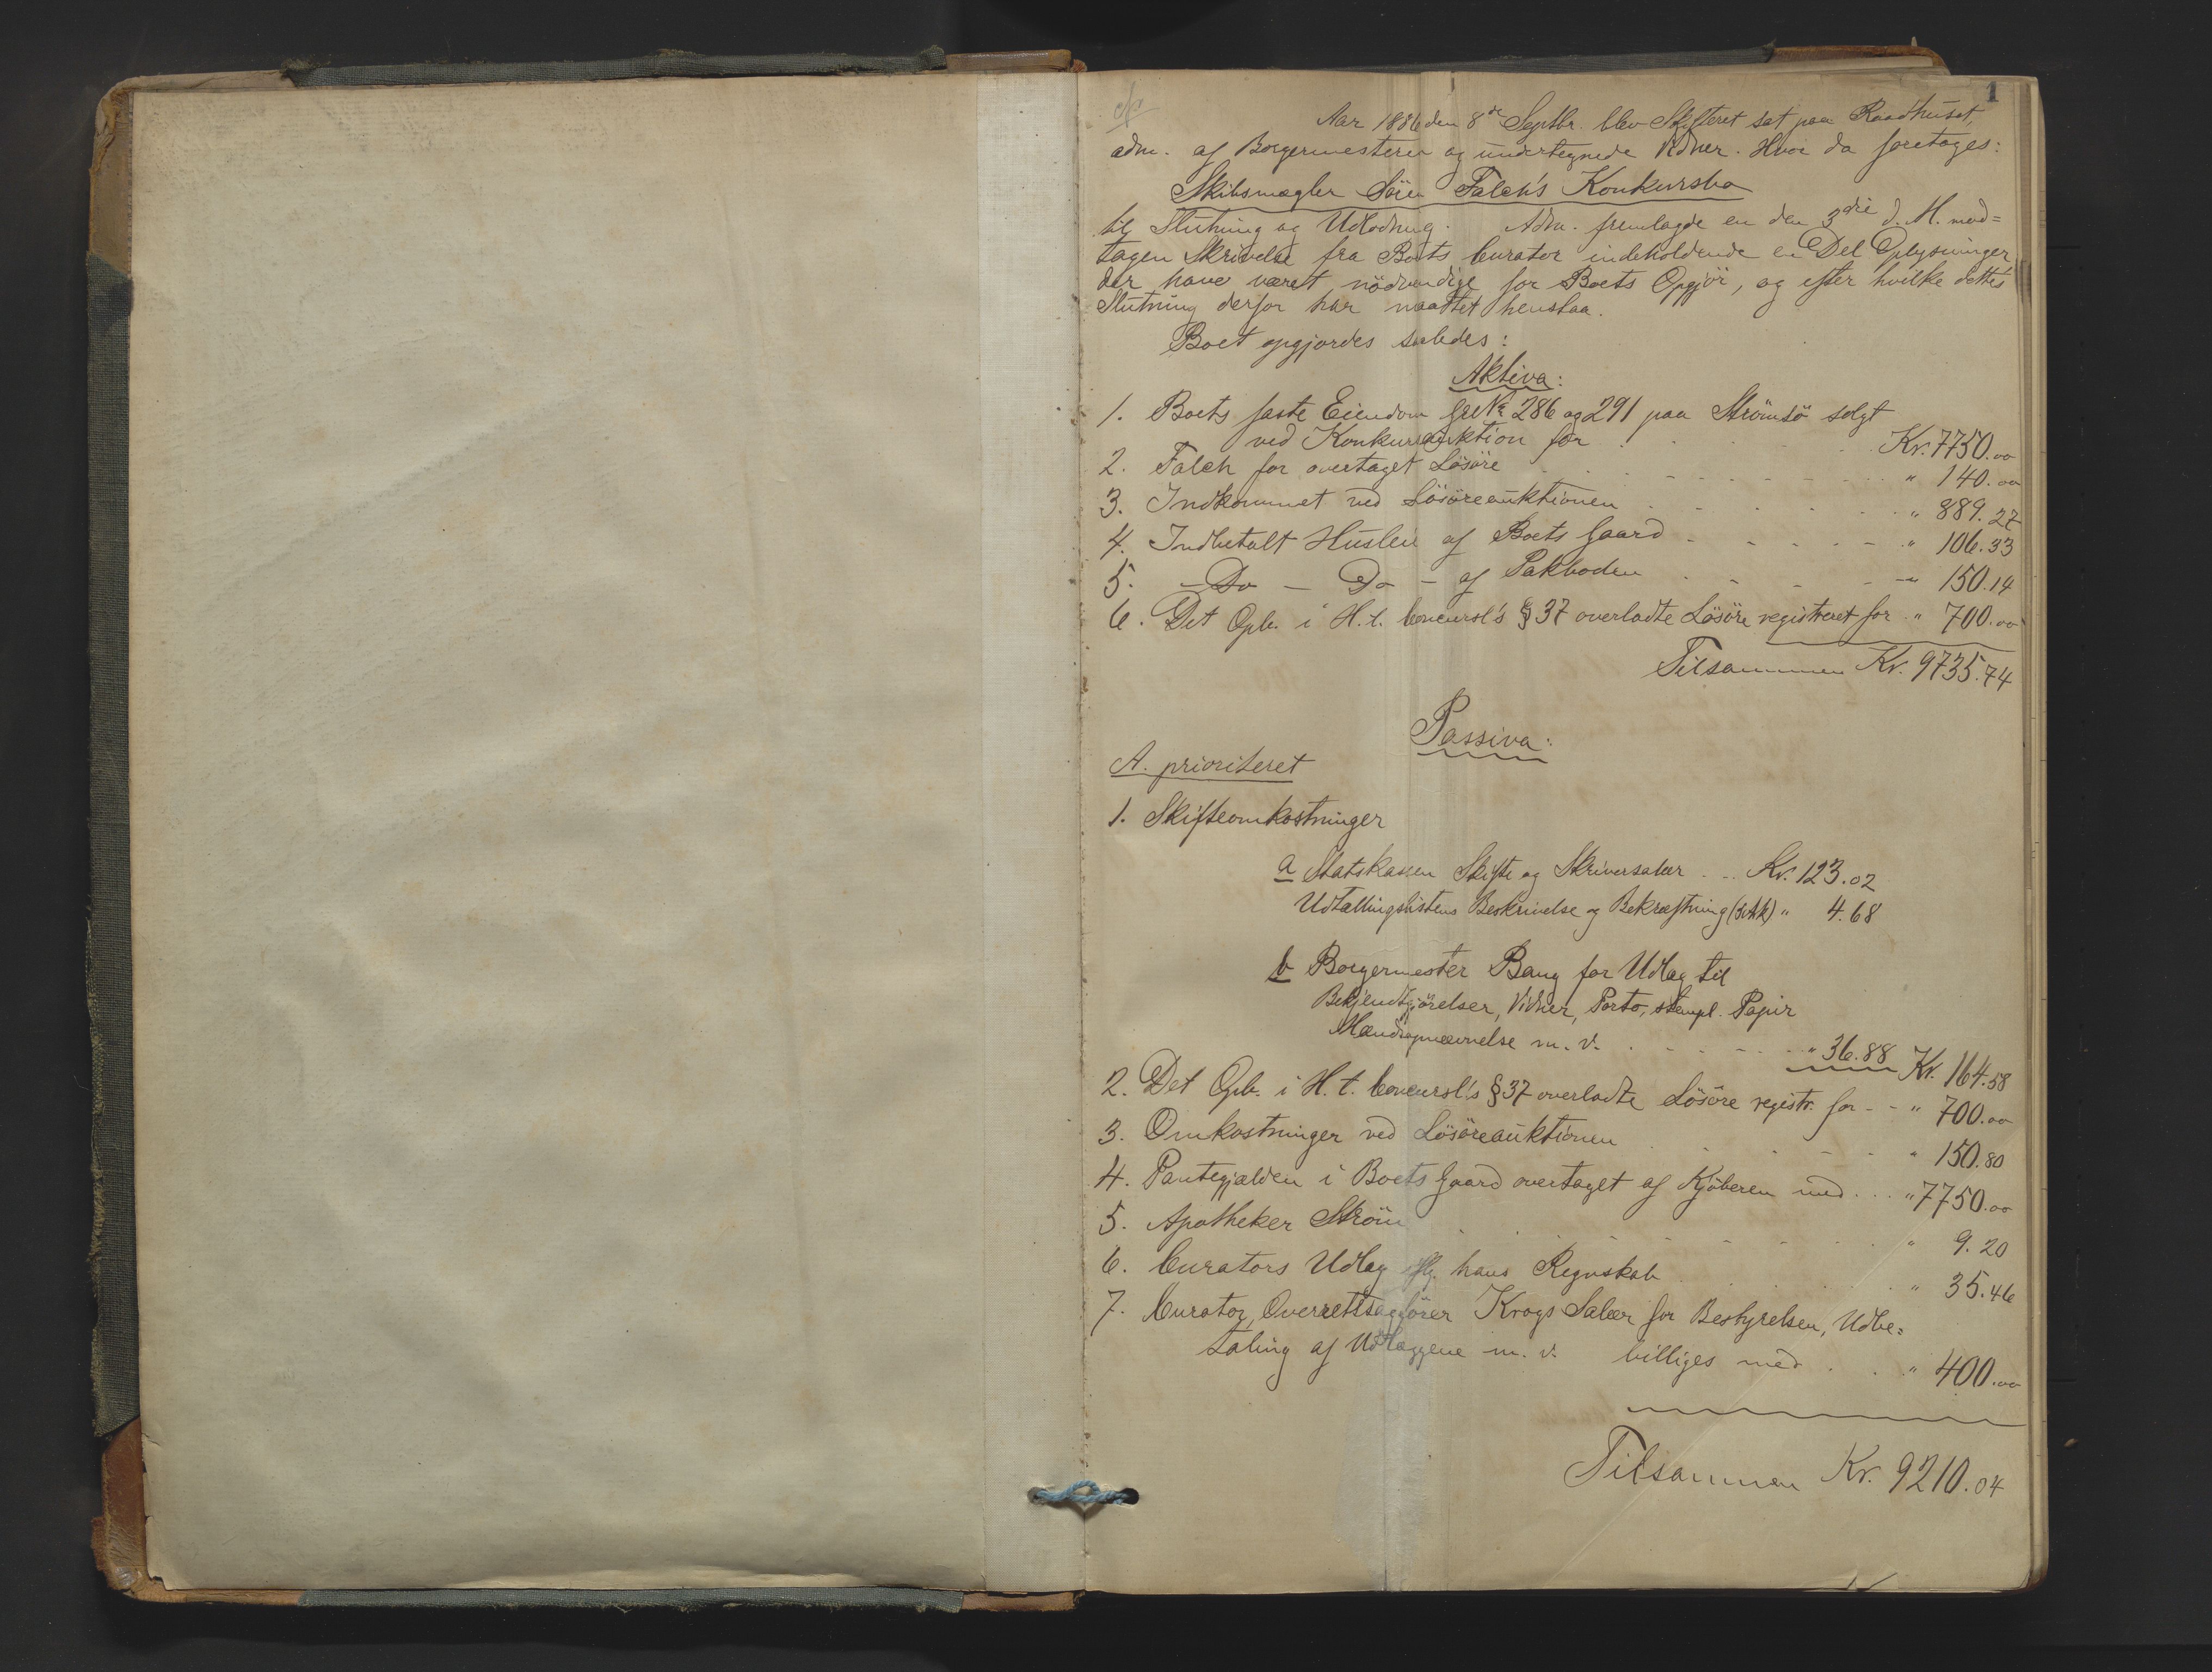 1
Aar 1886 den 8de Septbr. blev Skifteret sat paa Raadhuset,
adm. af Borgermesteren og undertegnede Vidner. Hvor da foretages:
Skibsmægler Sören Falch's Konkursbo
til Slutning og Udlodning. Adm. fremlagde en den 3die d. M. mod=
tagen Skrivelse fra Boets Curator indeholdende en Del Oplysninger
der have været nödvendige for Boets Opgjör, og efter hvilke dettes
Slutning derfor har maattet henstaa.
Boet opgjordes saaledes:
Aktiva:
1. Boets faste Eiendom No 286 og 291 paa Strömsö solgt
ved Konkursauktion for . . . Kr. 7750.00
2. Falch for overtaget Lösöre . . . " 140.00
3. Indkommet ved Lösöreauktionen . . . " 889.27
4. Indbetalt Husleie af Boets Gaard . . . " 106.33
5. - Do - Do - af Pakboden . . . " 150.14
6. Det Opb. i H. t. Concursl's § 37 overladte Lösöre registreret for " 700.00
Tilsammen Kr. 9735.74
Passiva:
A. prioriteret
1. Skifteomkostninger
a Statskassen Skifte og Skriversalær . . Kr. 123.02
Udtællingslistens Beskrivelse og Bekræftning " 4.68
b Borgermester Bang for Udlæg til
Bekjendtgjörelser, Vidner, Porto, stempl. Papir
Mændsopnævnelse m. v. . . . " 36.88 Kr. 164.58
2. Det Opb. i H. t. Concursl's § 37 overladte Lösöre registr. for - - " 700.00
3. Omkostninger ved Lösöreauktionen . . . " 150.80
4. Pantegjælden i Boets Gaard overtaget af Kjöberen med . . . " 7750.00
5. Apotheker Ström . . . " 9.20
6. Curators Udlæg iflg. hans Regnskab . . . " 35.46
7. Curator, Overretssagförer Krogs Salær for Bestyrelsen, Udbe=
taling af Udlæggene m. v. billiges med . . " 400.00
Tilsammen Kr. 9210.04